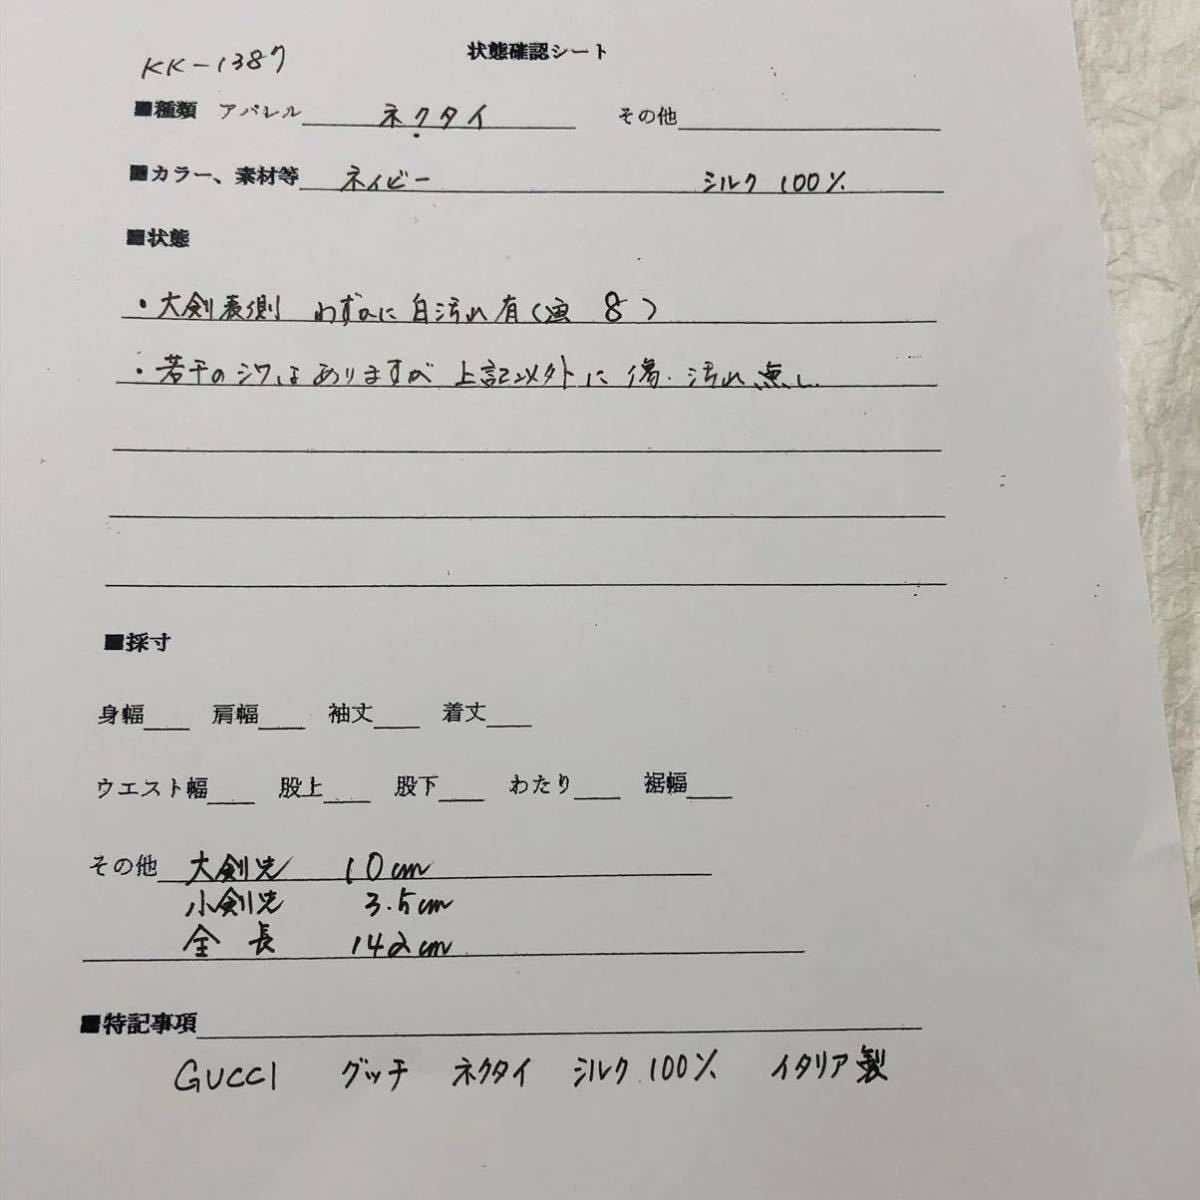 状態確認シート
KK-1387
■種類 アパレル ネクタイ その他
■カラー、素材等 ネイビー シルク 100%
■状態
・大剣表側 わずかに白汚れ有(画 8)
・若干のシワはありますが 上記以外に傷・汚れ無し
■採寸
身幅 肩幅 袖丈 着丈
ウエスト幅 股上 股下 わたり 裾幅
その他 大剣先 10cm
小剣先 3.5cm
全長 142cm
■特記事項
GUCCI グッチ ネクタイ シルク 100% イタリア製